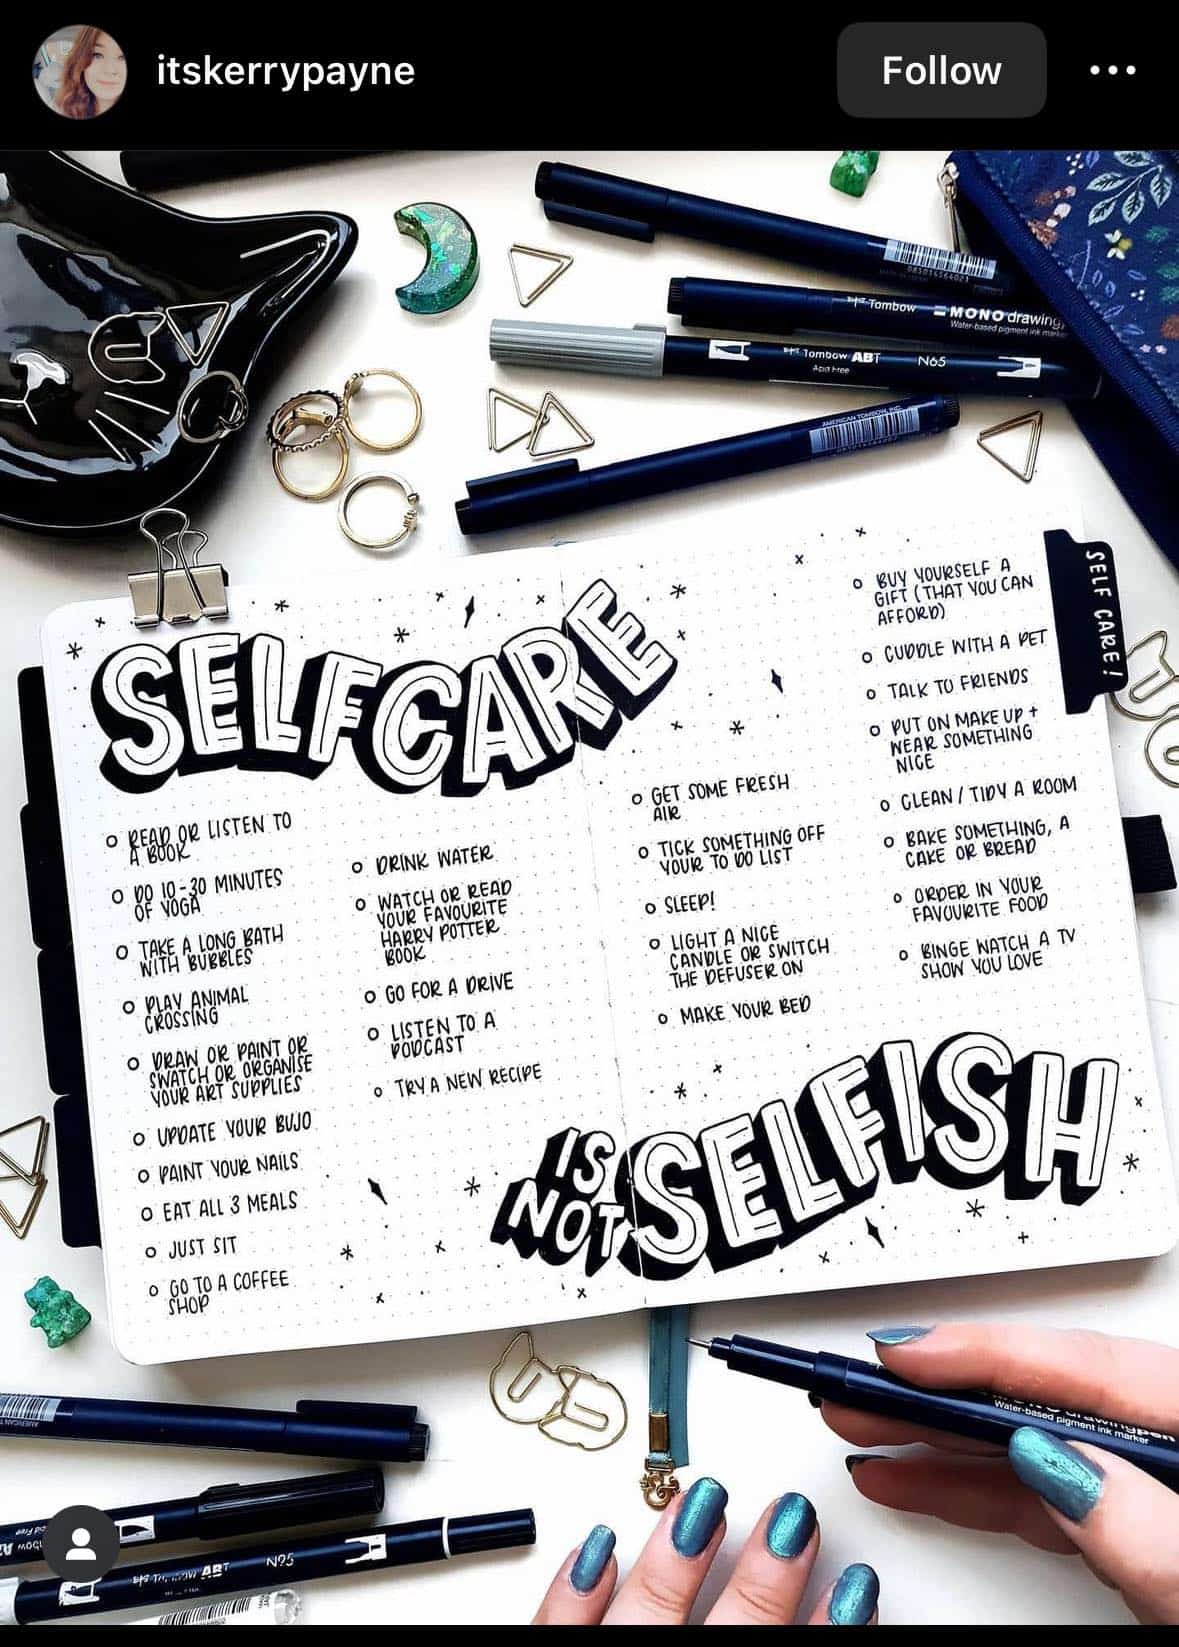 itskerrypayne
Follow
085014564021
Tombow MONO drawing
Water-based pigment ink marke
Tombow ABT N65
Acid Free
AMERICAN TOMBOW, INC.
SELF CARE!
SELFCARE
O READ OR LISTEN TO
A BOOK
O DO 10-30 MINUTES
OF YOGA
O TAKE A LONG BATH
WITH BUBBLES
O PLAY ANIMAL
CROSSING
O DRAW OR PAINT OR
SWATCH OR ORGANISE
YOUR ART SUPPLIES
O UPDATE YOUR BUJO
O PAINT YOUR NAILS
O EAT ALL 3 MEALS
O JUST SIT
O GO TO A COFFEE
SHOP
O DRINK WATER
O WATCH OR READ
YOUR FAVOURITE
HARRY POTTER
BOOK
O GO FOR A DRIVE
O LISTEN TO A
PODCAST
O TRY A NEW RECIPE
O GET SOME FRESH
AIR
O TICK SOMETHING OFF
YOUR TO DO LIST
O SLEEP!
O LIGHT A NICE
CANDLE OR SWITCH
THE DEFUSER ON
O MAKE YOUR BED
O BUY YOURSELF A
GIFT (THAT YOU CAN
AFFORD)
O CUDDLE WITH A PET
O TALK TO FRIENDS
O PUT ON MAKE UP +
WEAR SOMETHING
NICE
O CLEAN / TIDY A ROOM
O BAKE SOMETHING, A
CAKE OR BREAD
O ORDER IN YOUR
FAVOURITE FOOD
O BINGE WATCH A TV
SHOW YOU LOVE
IS
NOT
SELFISH
MONO drawingpen
Water-based pigment ink marker
ABT N95